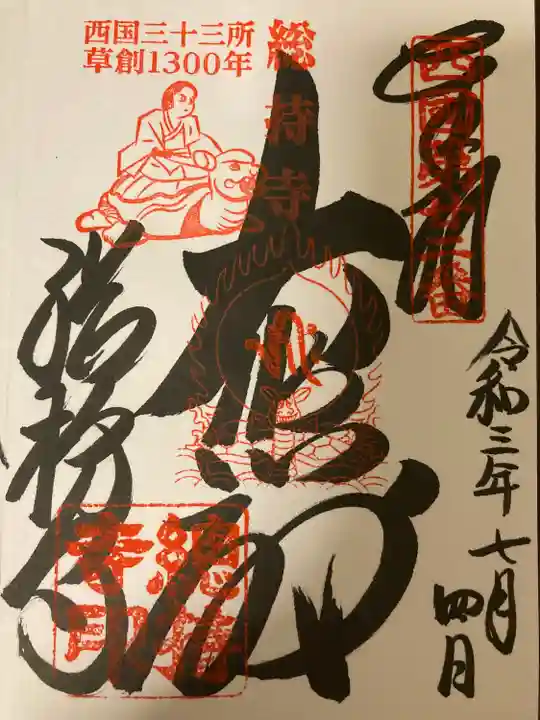 西国第廿二番
奉拝
令和三年七月
四日
大悲殿
総持寺
西国三十三所
草創1300年
総持寺
總持
寺印